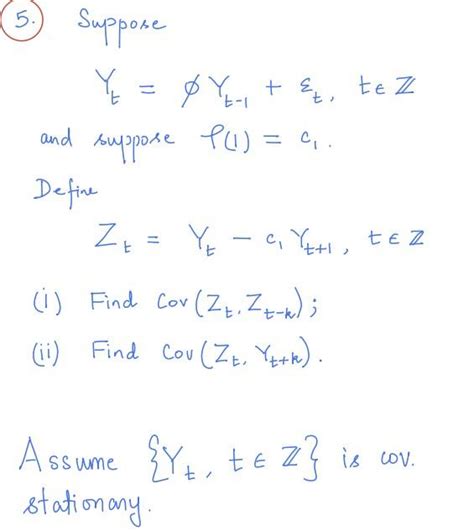 5. Suppose
Y_t = φ Y_{t-1} + ε_t, t ∈ ℤ
and suppose ρ(1) = c_1.
Define
Z_t = Y_t - c_1 Y_{t+1}, t ∈ ℤ
(i) Find Cov(Z_t, Z_{t-k});
(ii) Find Cov(Z_t, Y_{t+k}).
Assume {Y_t, t ∈ ℤ} is cov.
stationary.